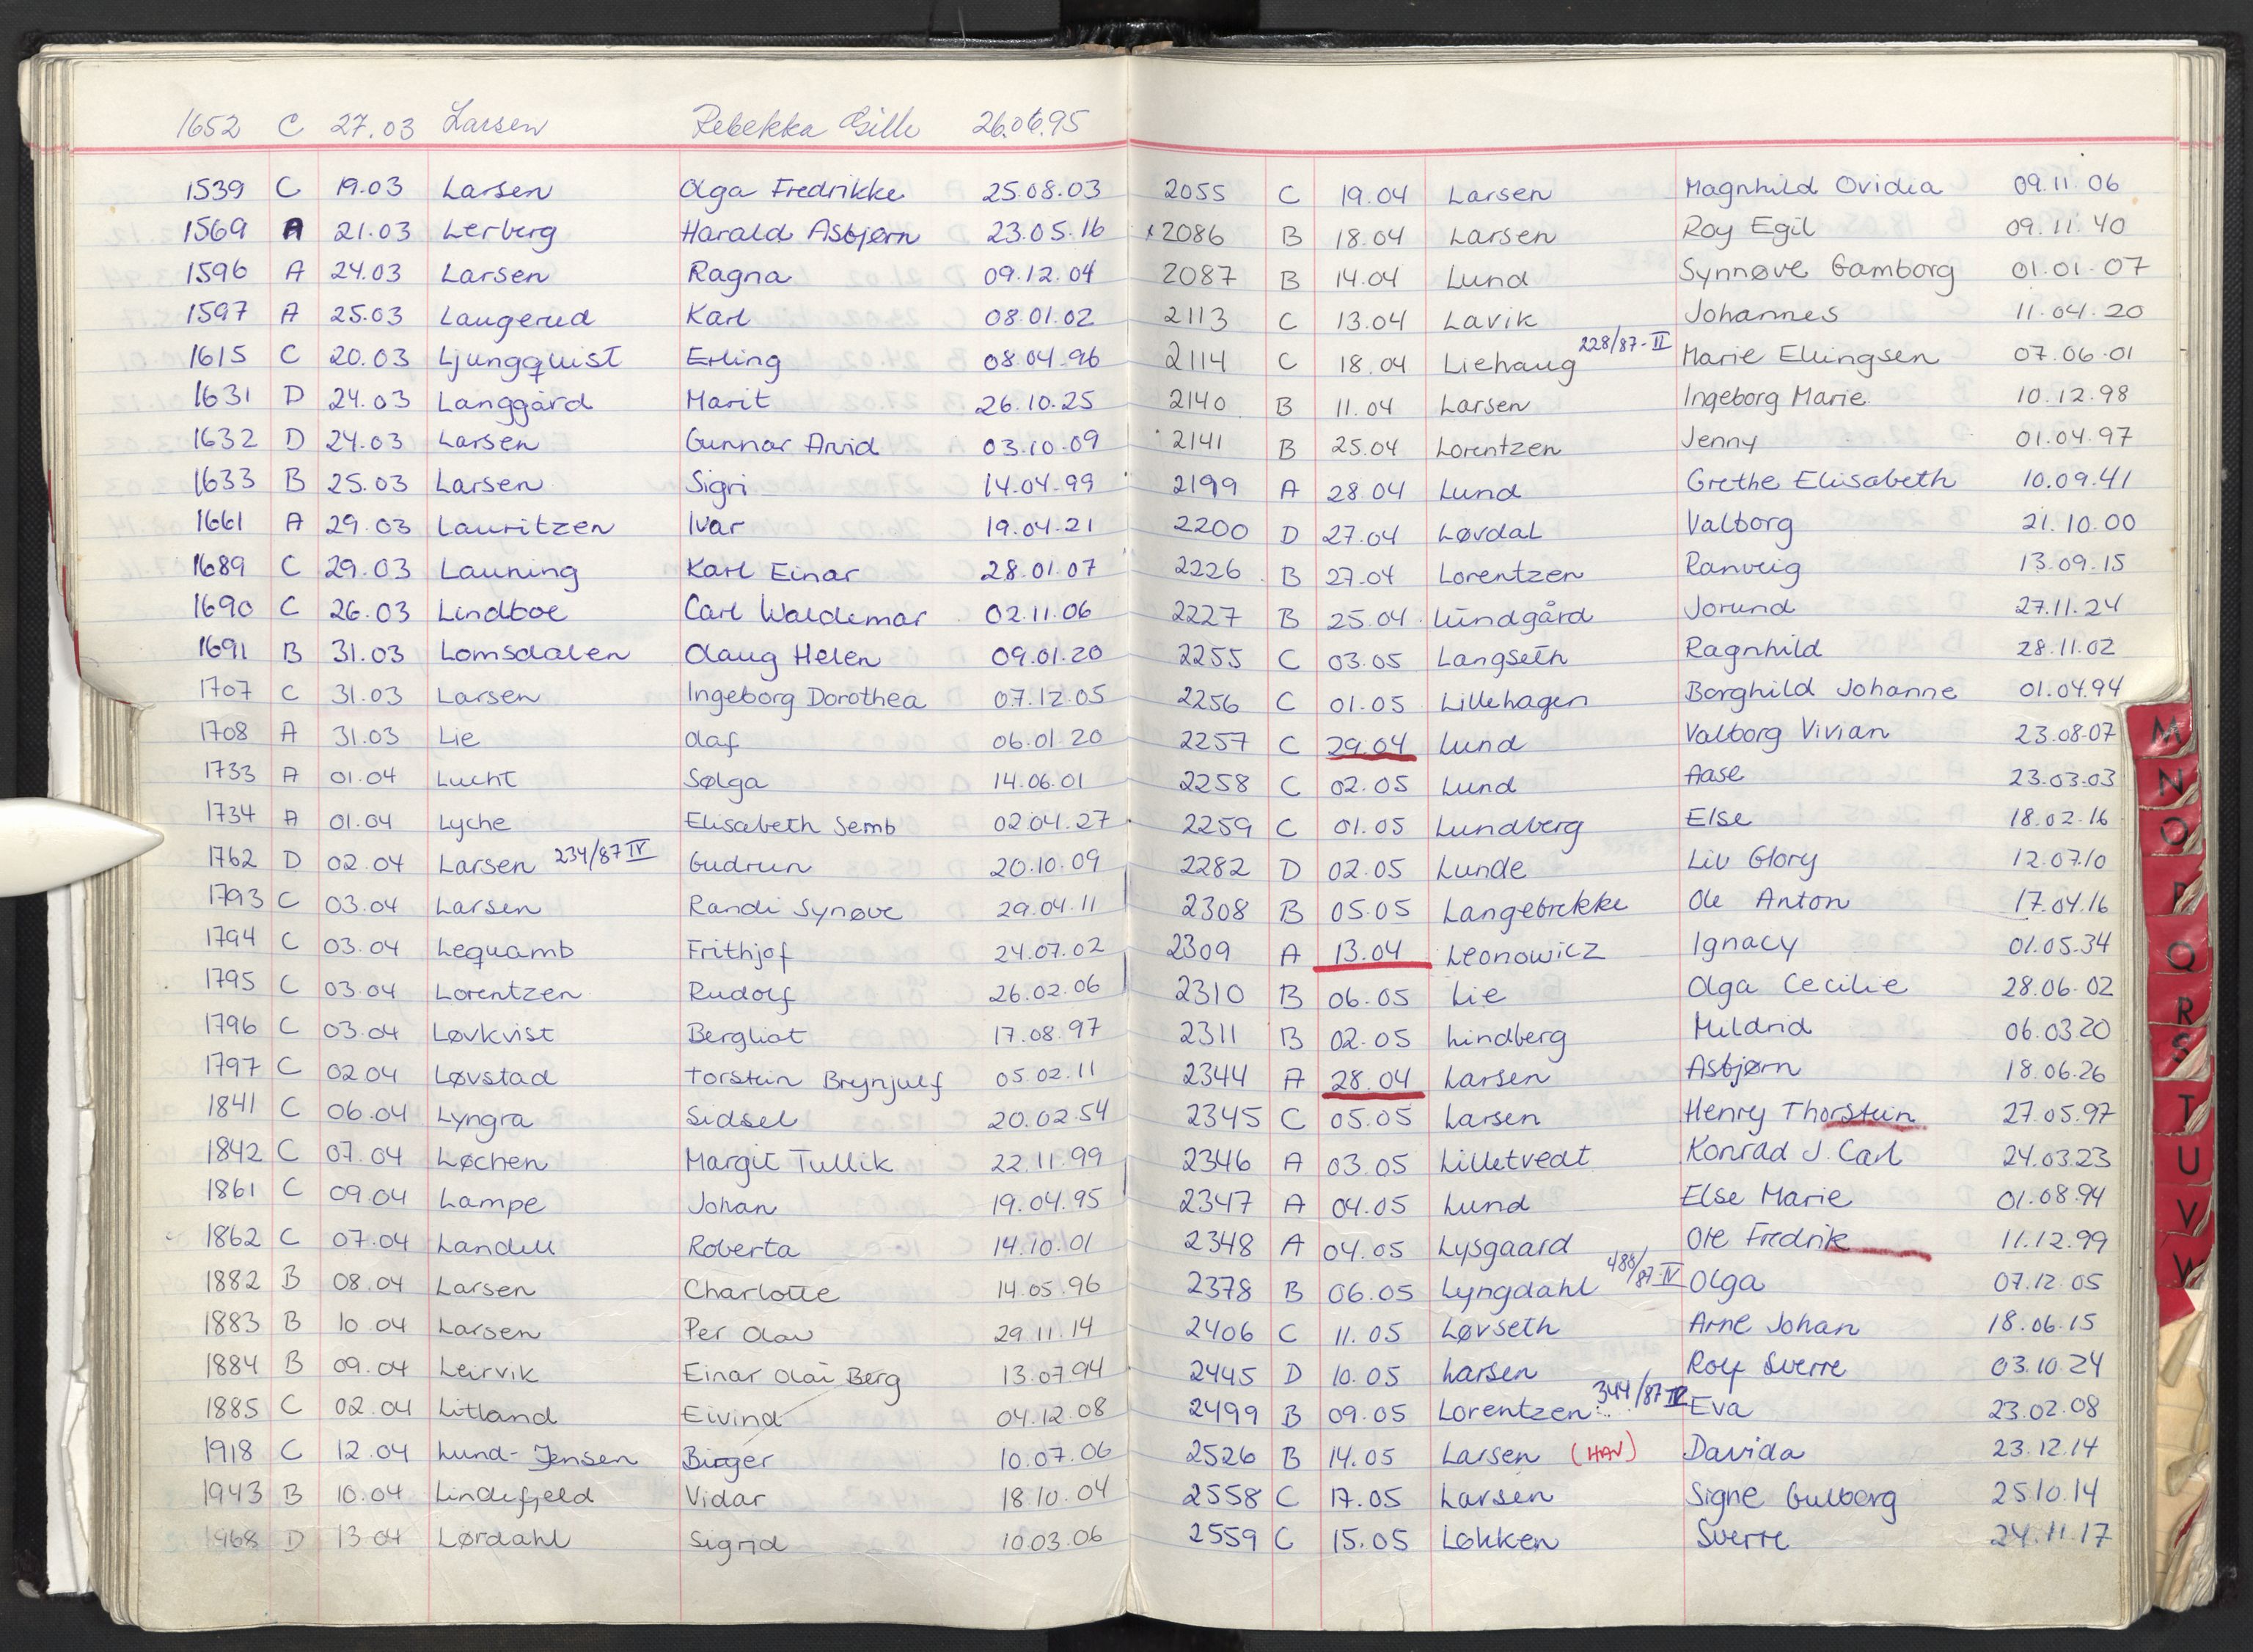 1652 C 27.03 Larsen Rebekka Gille 26.06.95
1539 C 19.03 Larsen Olga Fredrikke 25.08.03
1569 A 21.03 Lerberg Harald Asbjørn 23.05.16
1596 A 24.03 Larsen Ragna 09.12.04
1597 A 25.03 Laugerud Karl 08.01.02
1615 C 20.03 Ljungquist Erling 08.04.96
1631 D 24.03 Langgård Marit 26.10.25
1632 D 24.03 Larsen Gunnar Arvid 03.10.09
1633 B 25.03 Larsen Sigri 14.04.99
1661 A 29.03 Lauritzen Ivar 19.04.21
1689 C 29.03 Launing Karl Einar 28.01.07
1690 C 26.03 Lindboe Carl Waldemar 02.11.06
1691 B 31.03 Lomsdalen Olaug Helen 09.01.20
1707 C 31.03 Larsen Ingeborg Dorothea 07.12.05
1708 A 31.03 Lie Olaf 06.01.20
1733 A 01.04 Lucht Sølga 14.06.01
1734 A 01.04 Lyche Elisabeth Semb 02.04.27
1762 D 02.04 Larsen 234/87 IV Gudrun 20.10.09
1793 C 03.04 Larsen Randi Synøve 29.04.11
1794 C 03.04 Lequamb Frithjof 24.07.02
1795 C 03.04 Lorentzen Rudolf 26.02.06
1796 C 03.04 Løvkvist Bergliot 17.08.97
1797 C 02.04 Løvstad Torstein Brynjulf 05.02.11
1841 C 06.04 Lyngra Sidsel 20.02.54
1842 C 07.04 Løchen Margit Tullik 22.11.99
1861 C 09.04 Lampe Johan 19.04.95
1862 C 07.04 Landell Roberta 14.10.01
1882 B 08.04 Larsen Charlotte 14.05.96
1883 B 10.04 Larsen Per Olav 29.11.14
1884 B 09.04 Leirvik Einar Olai Berg 13.07.94
1885 C 02.04 Litland Eivind 04.12.08
1918 C 12.04 Lund-Jensen Birger 10.07.06
1943 B 10.04 Lindefjeld Vidar 18.10.04
1968 D 13.04 Lørdahl Sigrid 10.03.06
2055 C 19.04 Larsen Magnhild Ovidia 09.11.06
x 2086 B 18.04 Larsen Roy Egil 09.11.40
2087 B 14.04 Lund Synnøve Gamborg 01.01.07
2113 C 13.04 Lavik Johannes 11.04.20
2114 C 18.04 Liehaug 228/87-II Marie Ellingsen 07.06.01
2140 B 11.04 Larsen Ingeborg Marie 10.12.98
2141 B 25.04 Lorentzen Jenny 01.04.97
2199 A 28.04 Lund Grethe Elisabeth 10.09.41
2200 D 27.04 Løvdal Valborg 21.10.00
2226 B 27.04 Lorentzen Ranveig 13.09.15
2227 B 25.04 Lundgård Jorund 27.11.24
2255 C 03.05 Langseth Ragnhild 28.11.02
2256 C 01.05 Lillehagen Borghild Johanne 01.04.94
2257 C 29.04 Lund Valborg Vivian 23.08.07
2258 C 02.05 Lund Aase 23.03.03
2259 C 01.05 Lundberg Else 18.02.16
2282 D 02.05 Lunde Liv Glory 12.07.10
2308 B 05.05 Langebrekke Ole Anton 17.04.16
2309 A 13.04 Leonowicz Ignacy 01.05.34
2310 B 06.05 Lie Olga Cecilie 28.06.02
2311 B 02.05 Lindberg Mildrid 06.03.20
2344 A 28.04 Larsen Asbjørn 18.06.26
2345 C 05.05 Larsen Henry Thorstein 27.05.97
2346 A 03.05 Lilletvedt Konrad J. Carl 24.03.23
2347 A 04.05 Lund Else Marie 01.08.94
2348 A 04.05 Lysgaard Ole Fredrik 11.12.99
2378 B 06.05 Lyngdahl 486/87-IV Olga 07.12.05
2406 C 11.05 Løvseth Arne Johan 18.06.15
2445 D 10.05 Larsen Rolf Sverre 03.10.24
2499 B 09.05 Lorentzen 344/87 Eva 23.02.08
2526 B 14.05 Larsen (HAV) Davida 23.12.14
2558 C 17.05 Larsen Signe Gulborg 25.10.14
2559 C 15.05 Løkken Sverre 24.11.17
M
N
O
P
Q
R
S
T
U
V
W